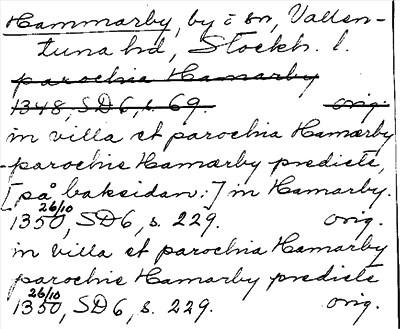 Hammarby, by i sn, Vallen-
tuna hd, Stockh. l.
parochia Hamarby
1348, SD6, s. 69. orig.
in villa et parochia Hamærby
-parochie Hamærby predicte,
[på baksidan:] in Hamarby.
26/10
1350, SD6, s. 229. orig.
in villa et parochia Hamarby
parochie Hamarby predicte
26/10
1350, SD6, s. 229. orig.